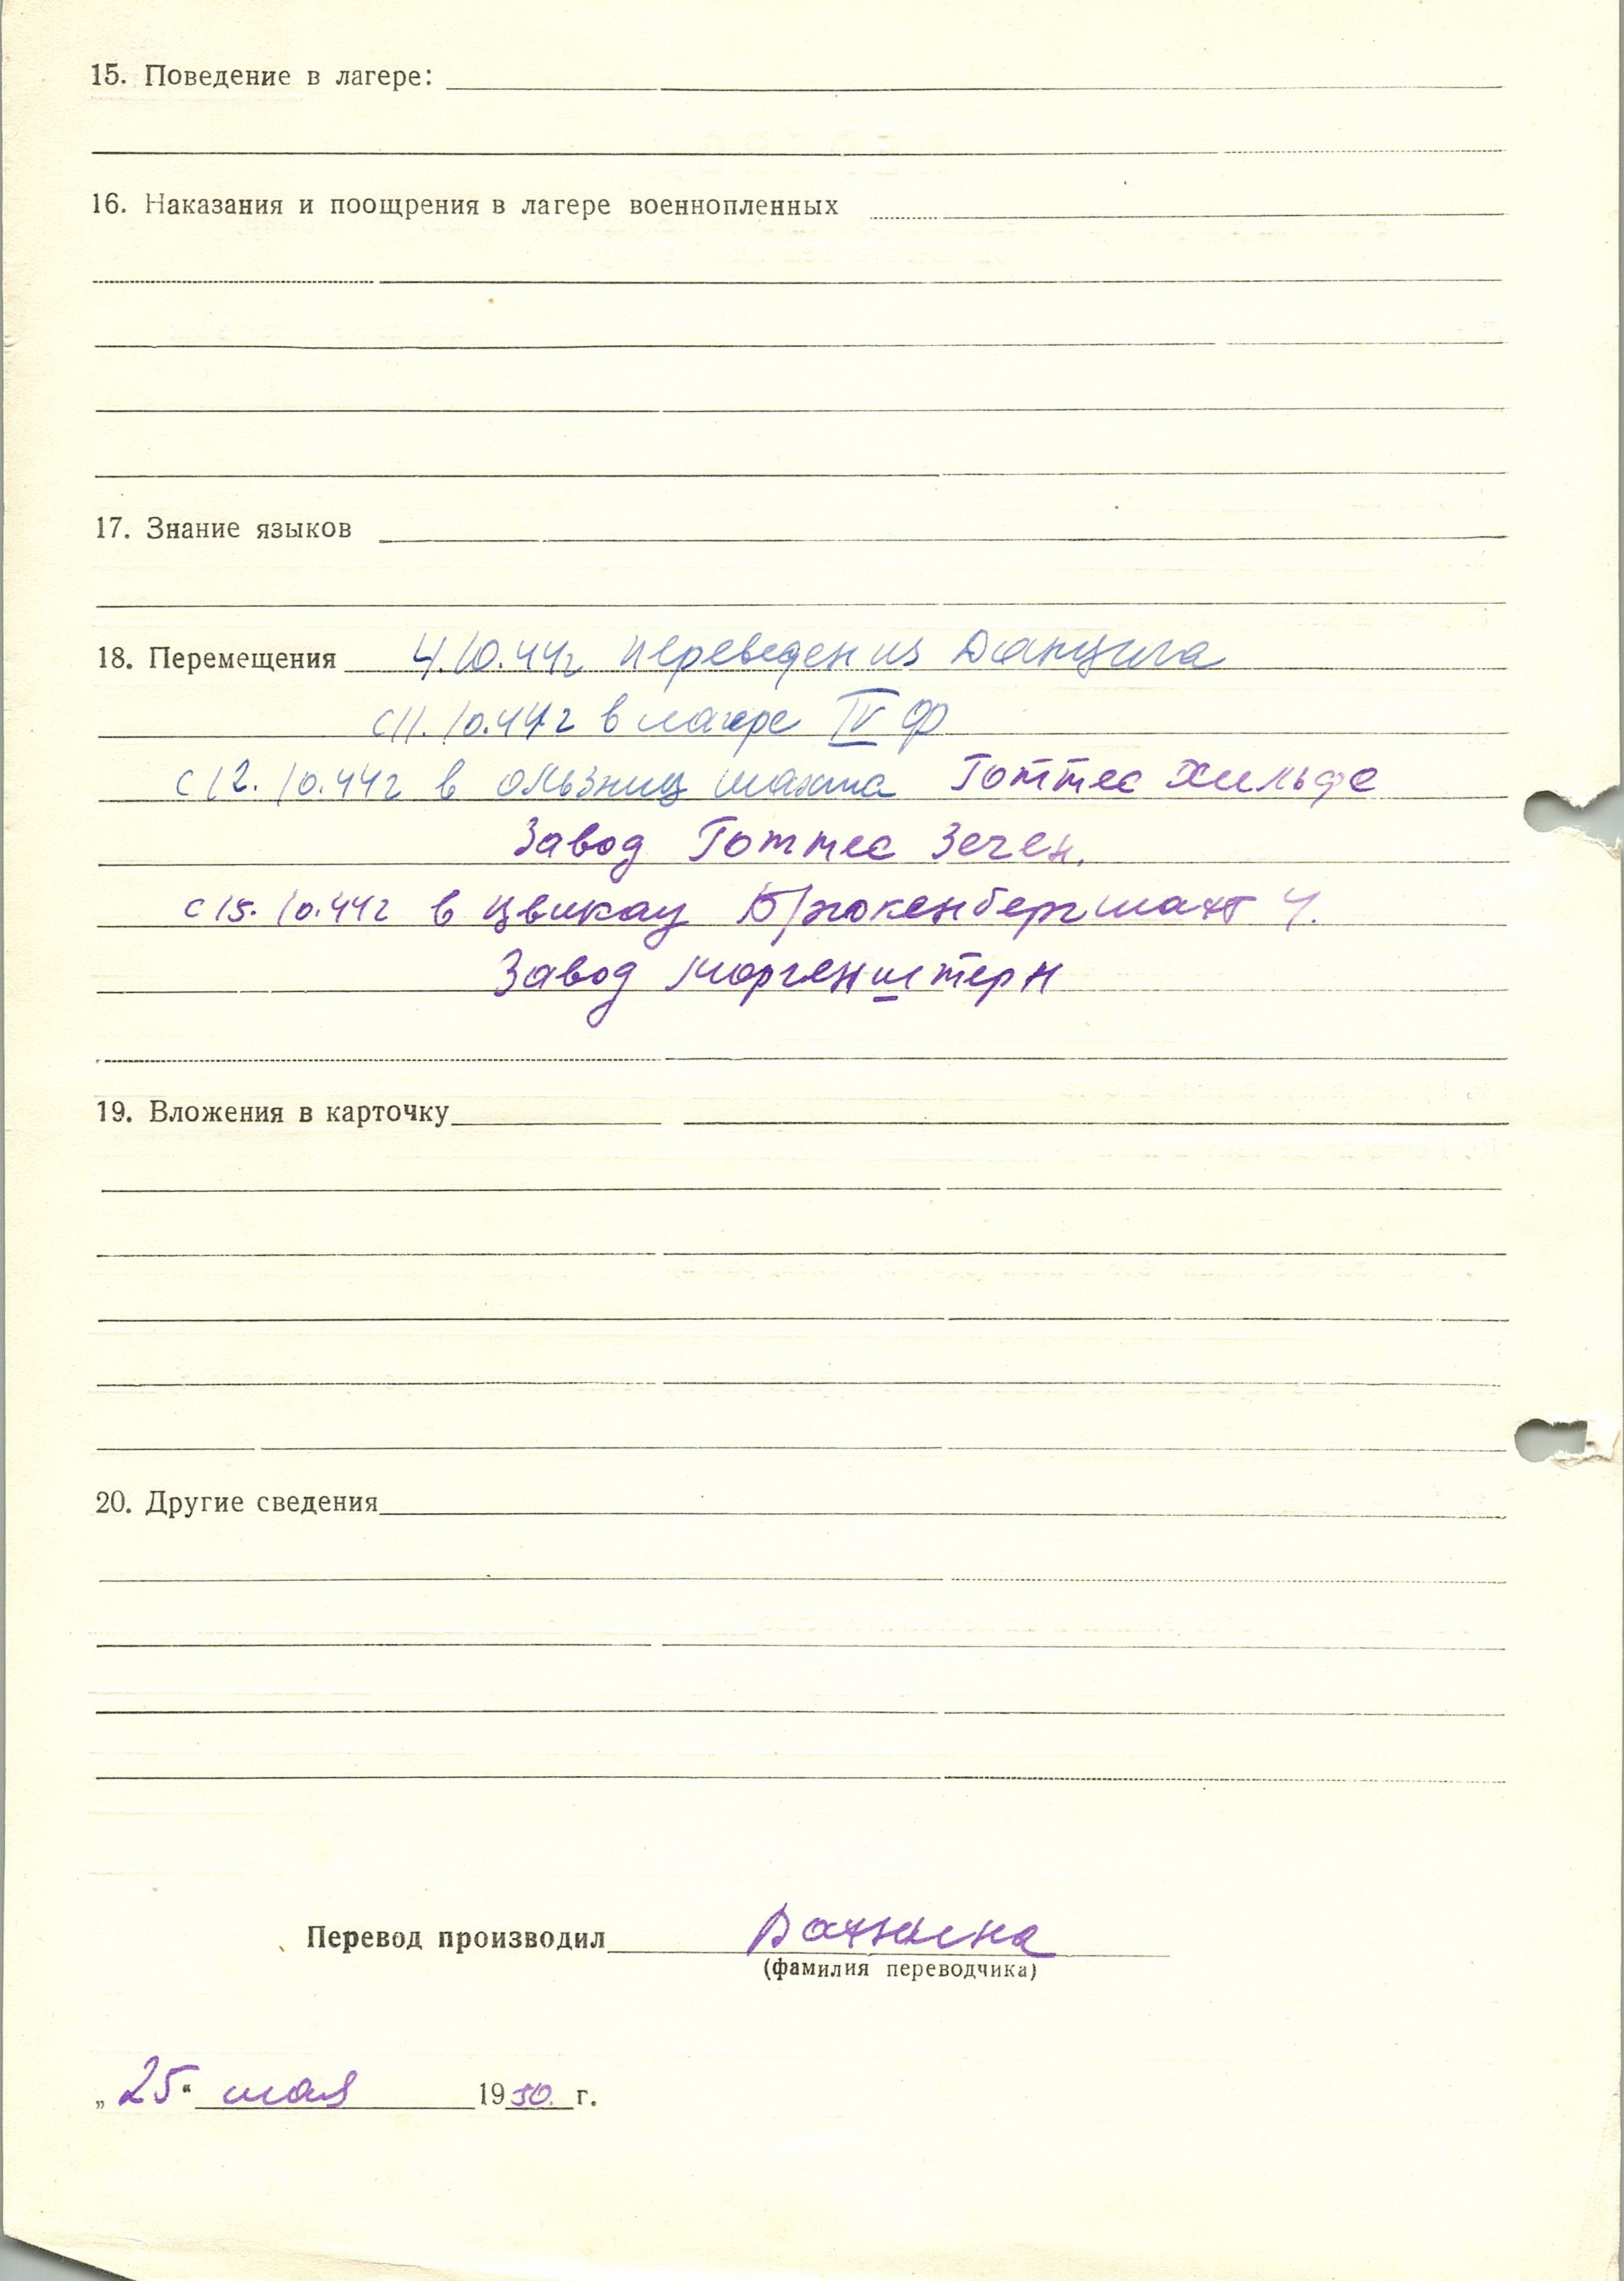 15. Поведение в лагере:
16. Наказания и поощрения в лагере военнопленных
17. Знание языков
18. Перемещения 4.10.44г переведен из Данцига
с 11.10.44г в лагере IV Ф
с 12.10.44г в Ользниц шахта Готтес Хильфе
Завод Готтес Зеген.
с 15.10.44г в Цвикау Брюкенбергшахт 4.
Завод Моргенштерн
19. Вложения в карточку
20. Другие сведения
Перевод производил
(фамилия переводчика)
„25“ мая 1950. г.